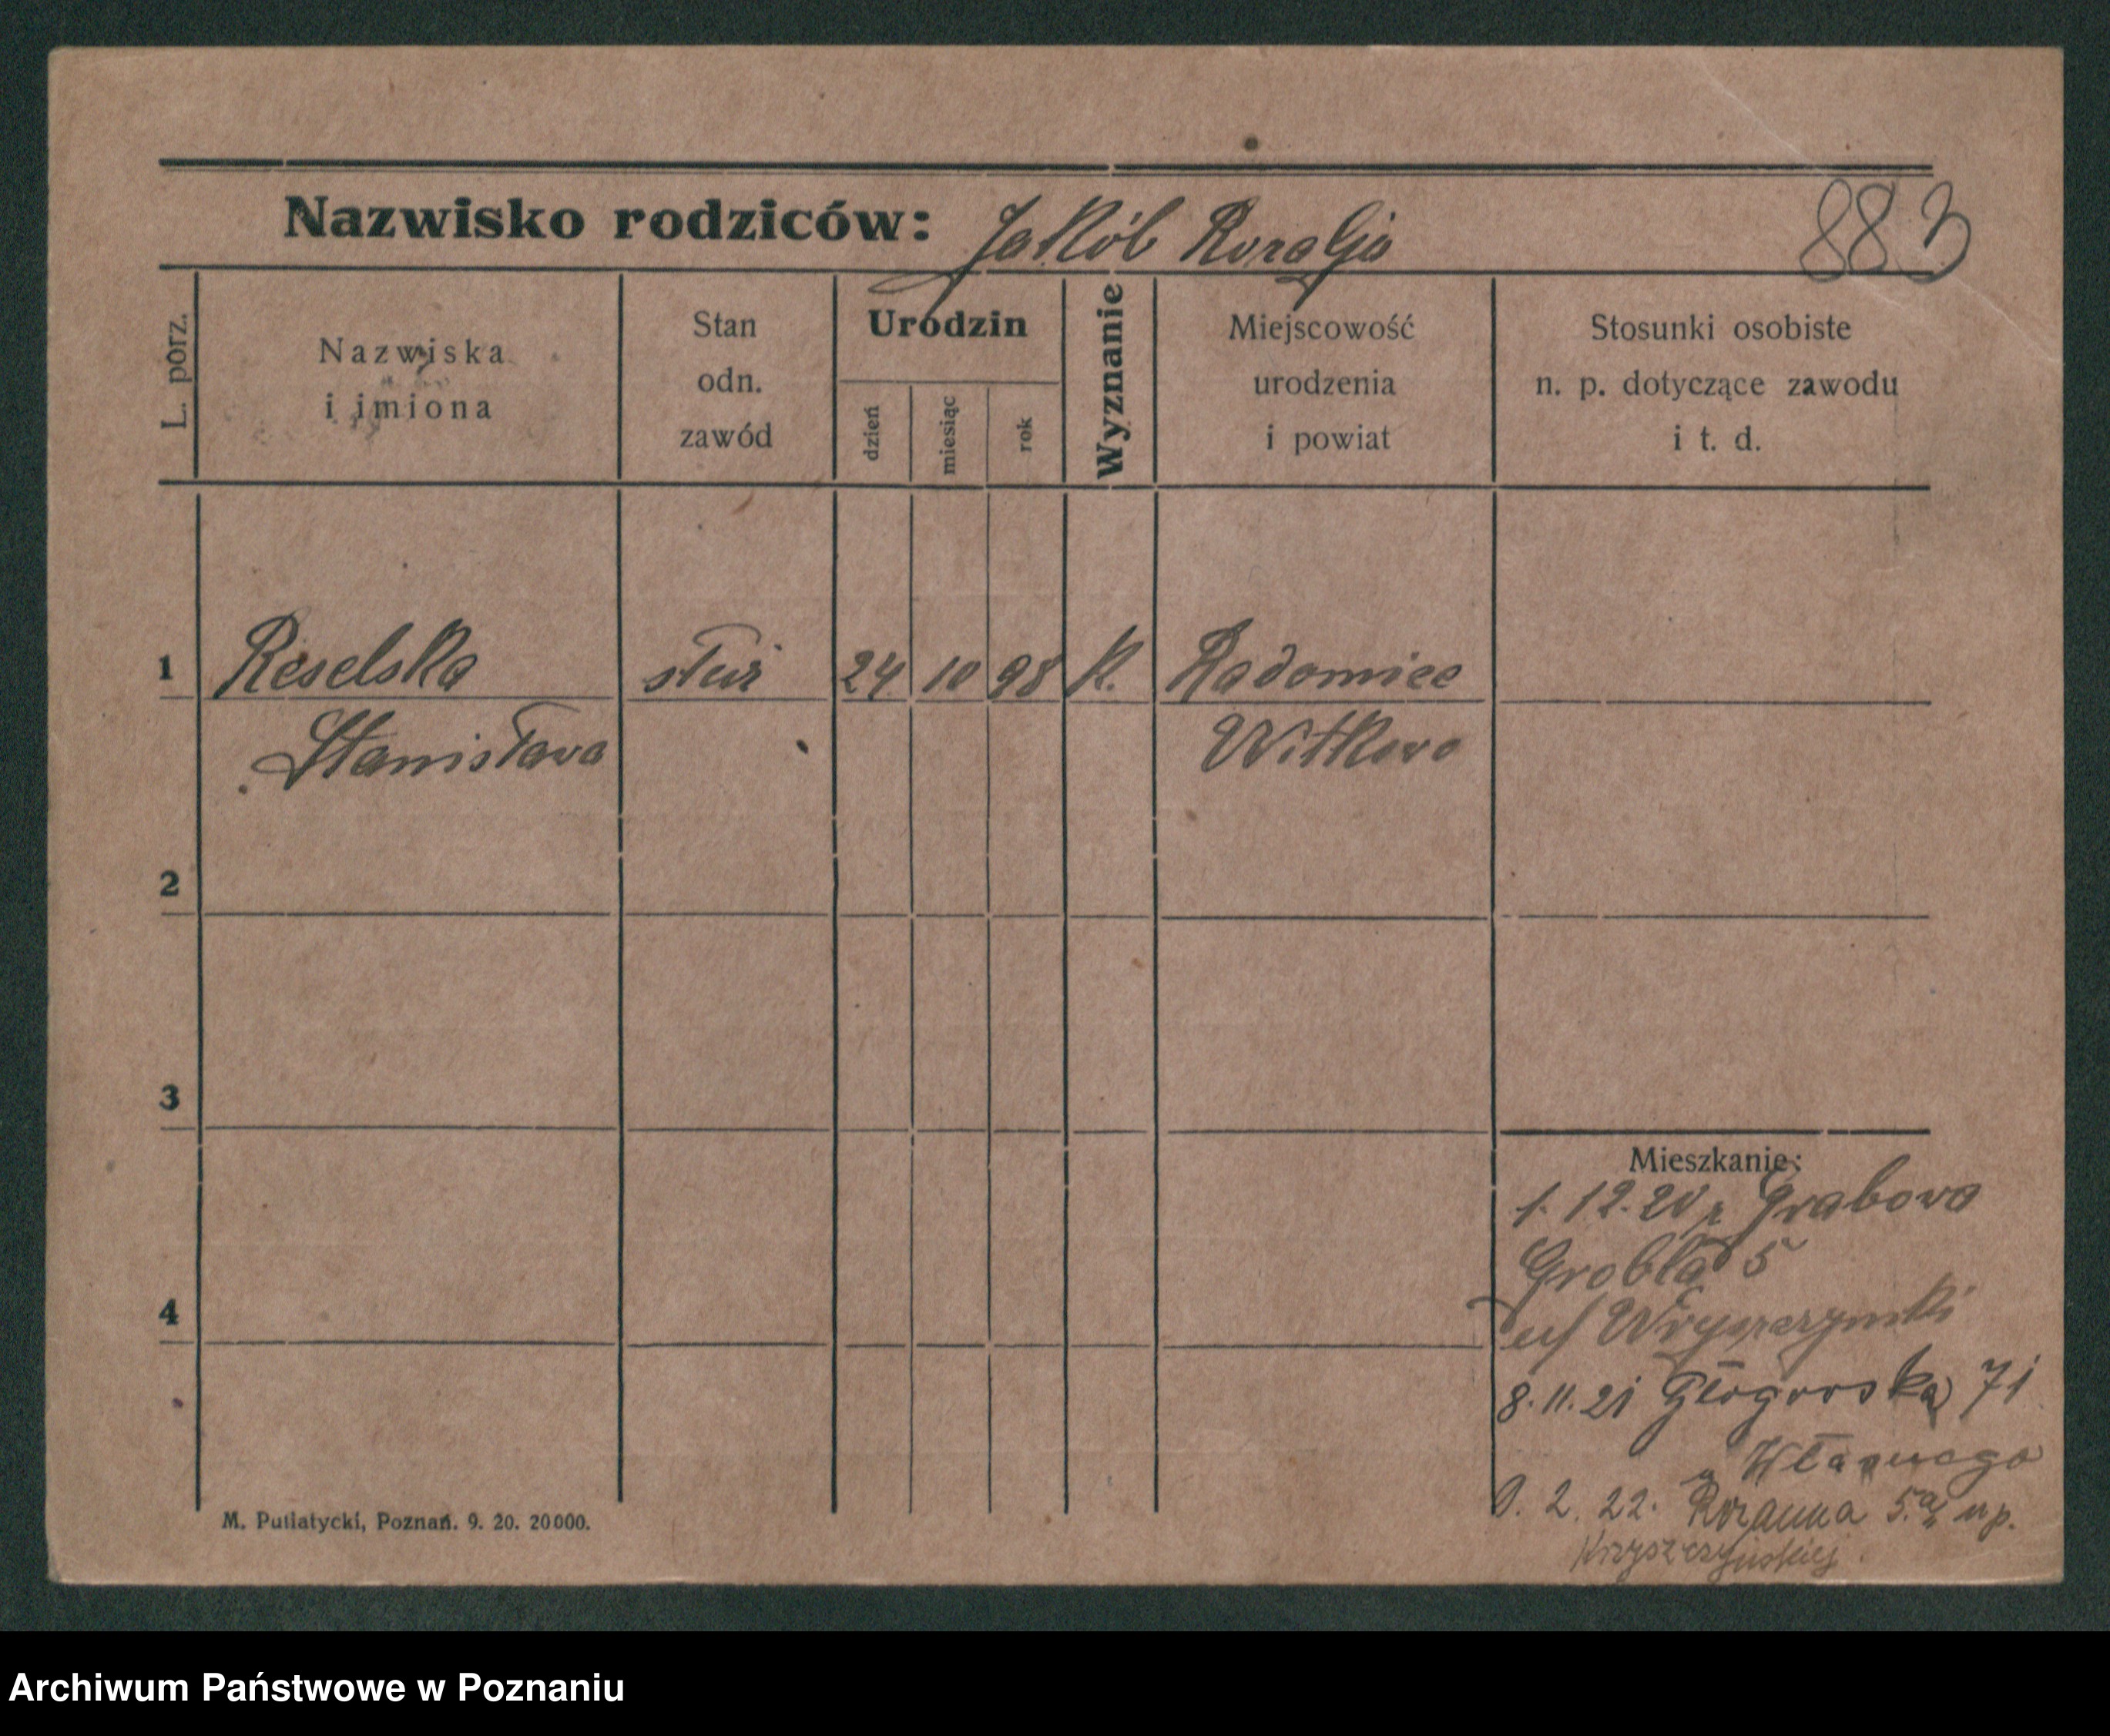 Nazwisko rodziców: Jakób Rozalja 883
L. porz.
Nazwiska
i imiona
Stan
odn.
zawód
Urodzin
dzień
miesiąc
rok
Wyznanie
Miejscowość
urodzenia
i powiat
Stosunki osobiste
n. p. dotyczące zawodu
i t. d.
1 Reselska służ 24 10 98 k. Radomice
Stanisława Witkowo
2
3
4
Mieszkanie:
1.12.20 z Grabowa
Grobla 5
8.11.21 Głogowska 71
u Własnego
2. 22. 5a u p.
Krzyszczyńskiej
M. Putiatycki, Poznań. 9. 20. 20000.
Archiwum Państwowe w Poznaniu